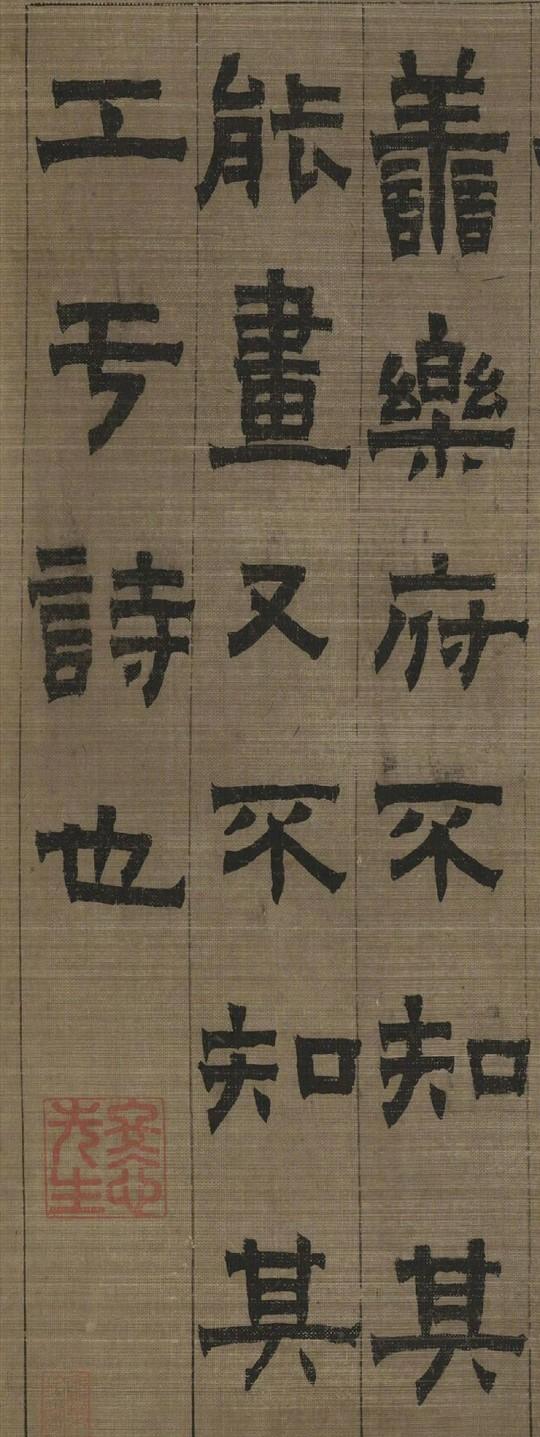 譱樂府不知其
能畫又不知其
工亏詩也
冬心先生